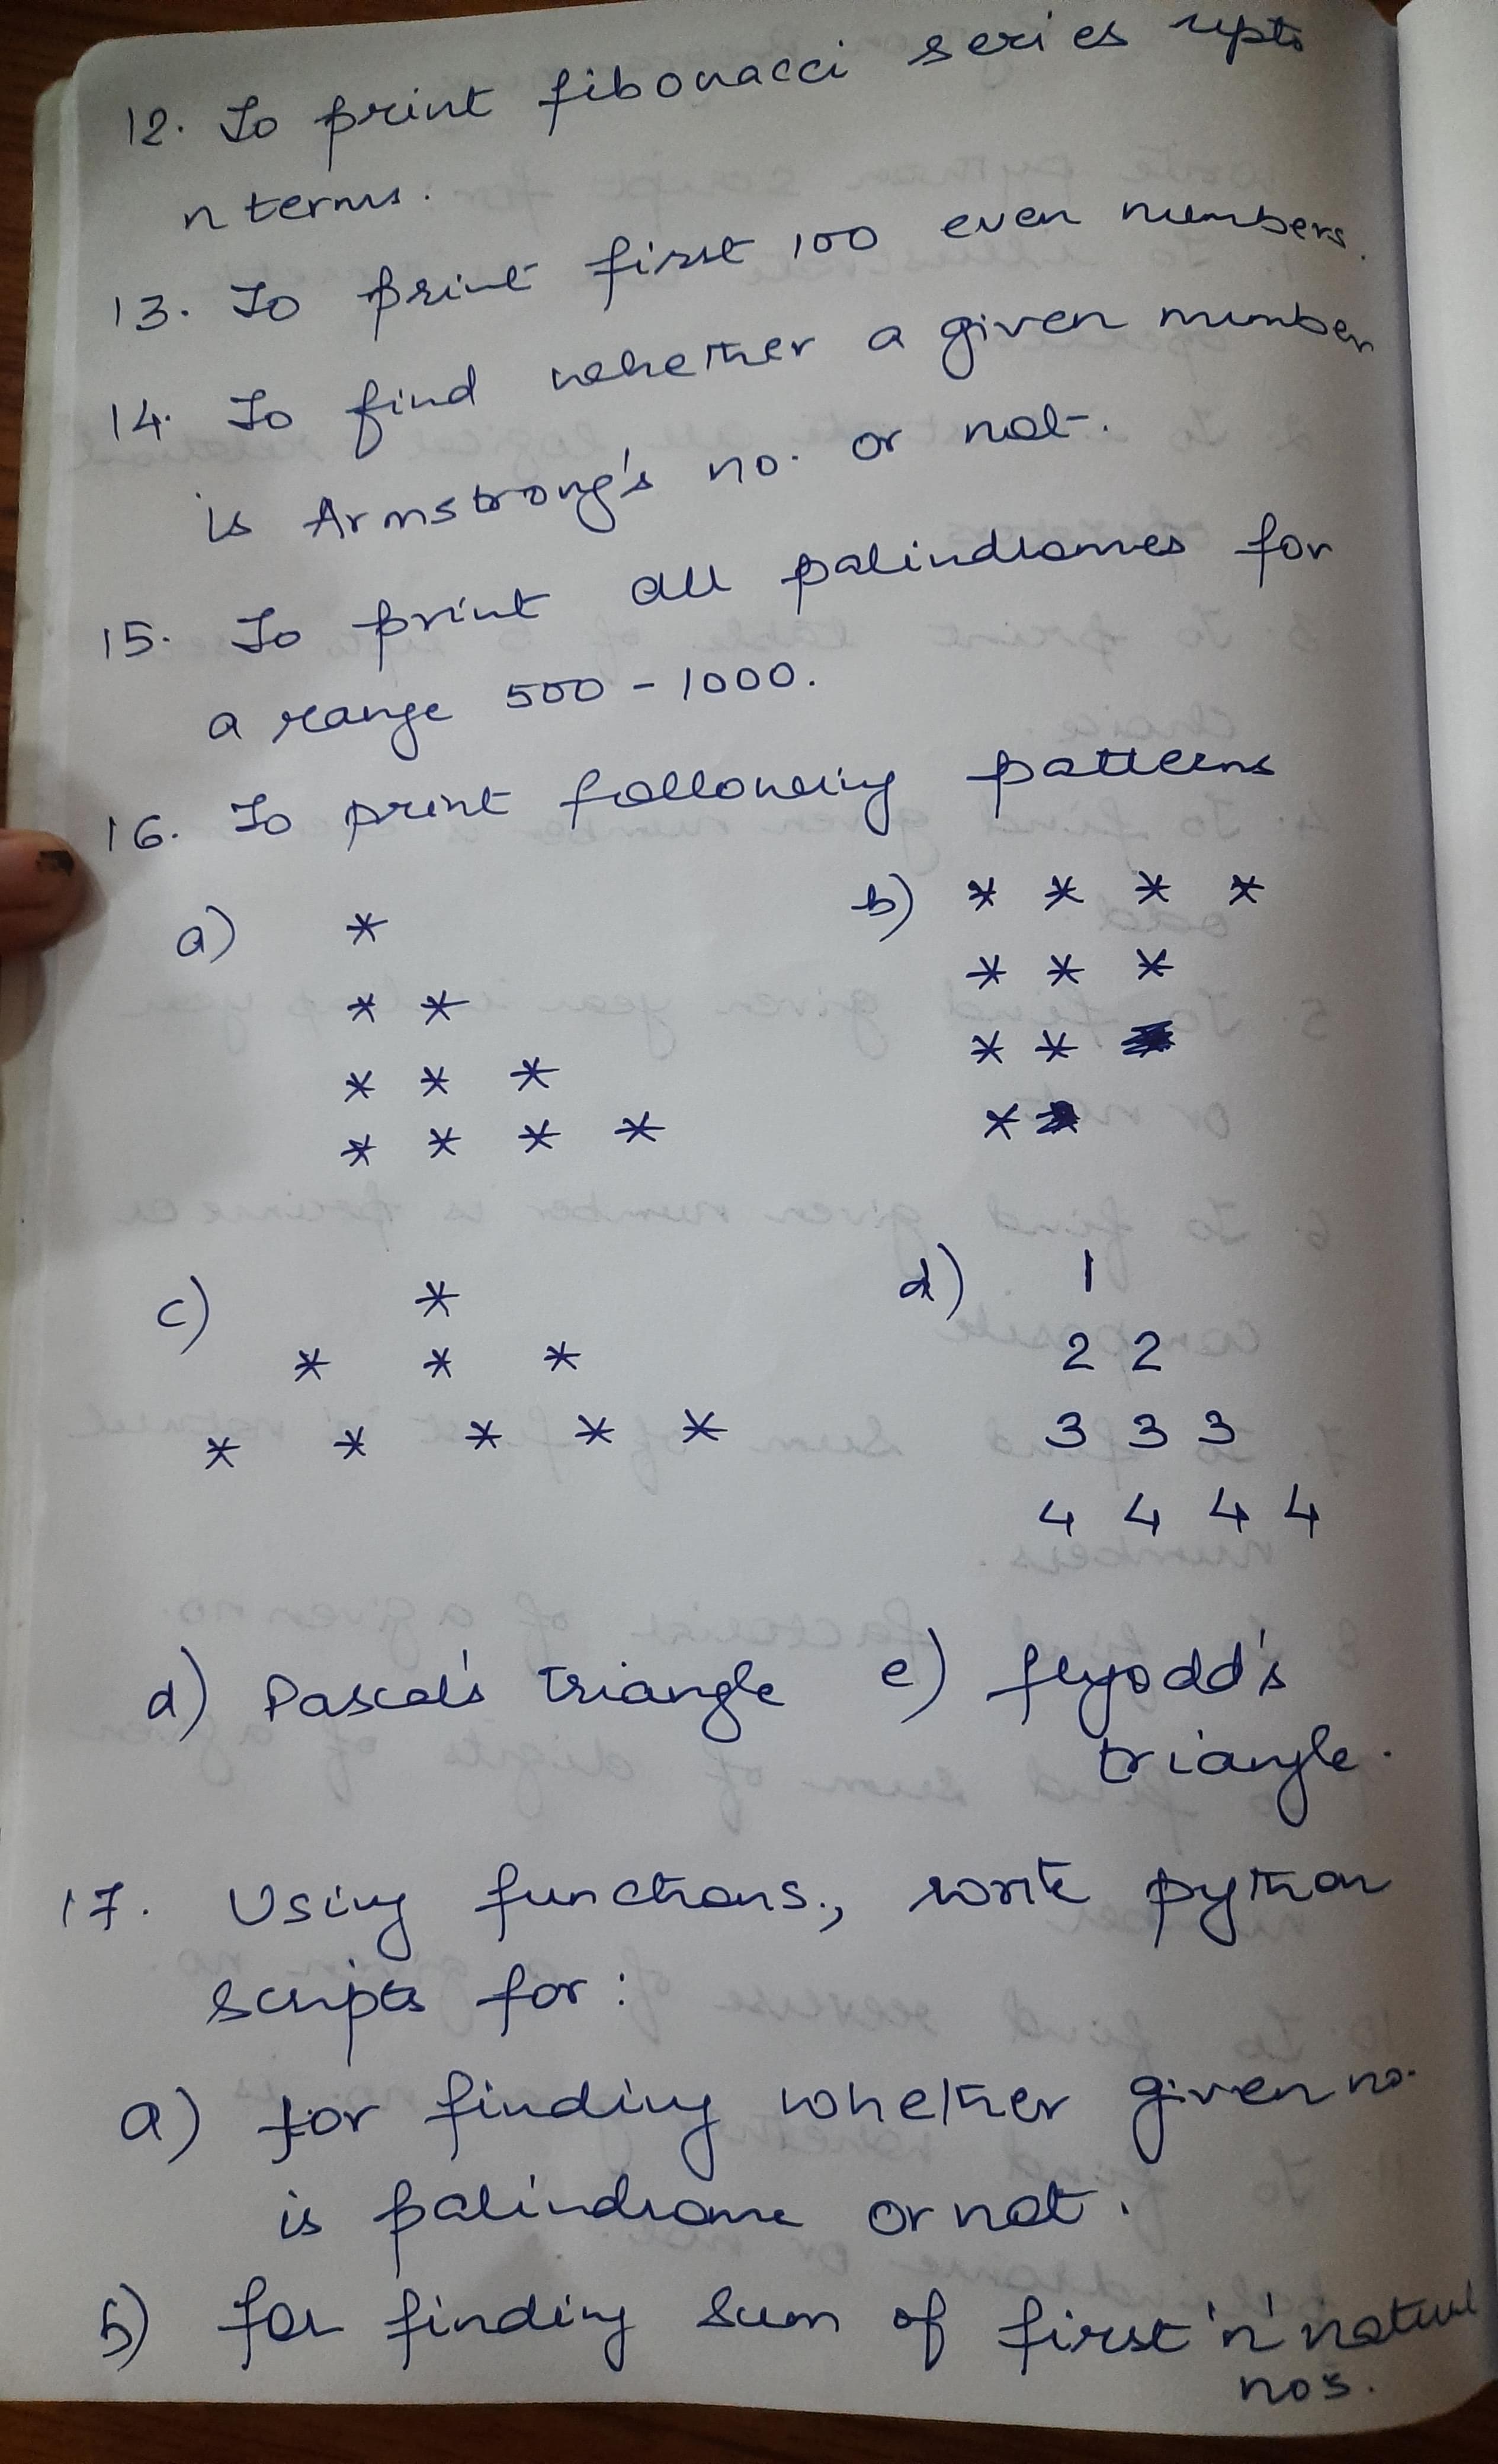 12. To print fibonacci series upto
n terms.
13. To print first 100 even numbers.
14. To find whether a given number
is Armstrong's no. or not.
15. To print all palindromes for
a range 500 - 1000.
16. To print following patterns
a) *
* *
* * *
* * * *
b) * * * *
* * *
* *
*
c) *
* * *
* * * * *
d) 1
2 2
3 3 3
4 4 4 4
d) Pascal's Triangle
e) flyodd's
triangle.
17. Using functions., write python
scripts for :
a) for finding whether given no.
is palindrome or not.
b) for finding sum of first 'n' natural
nos.